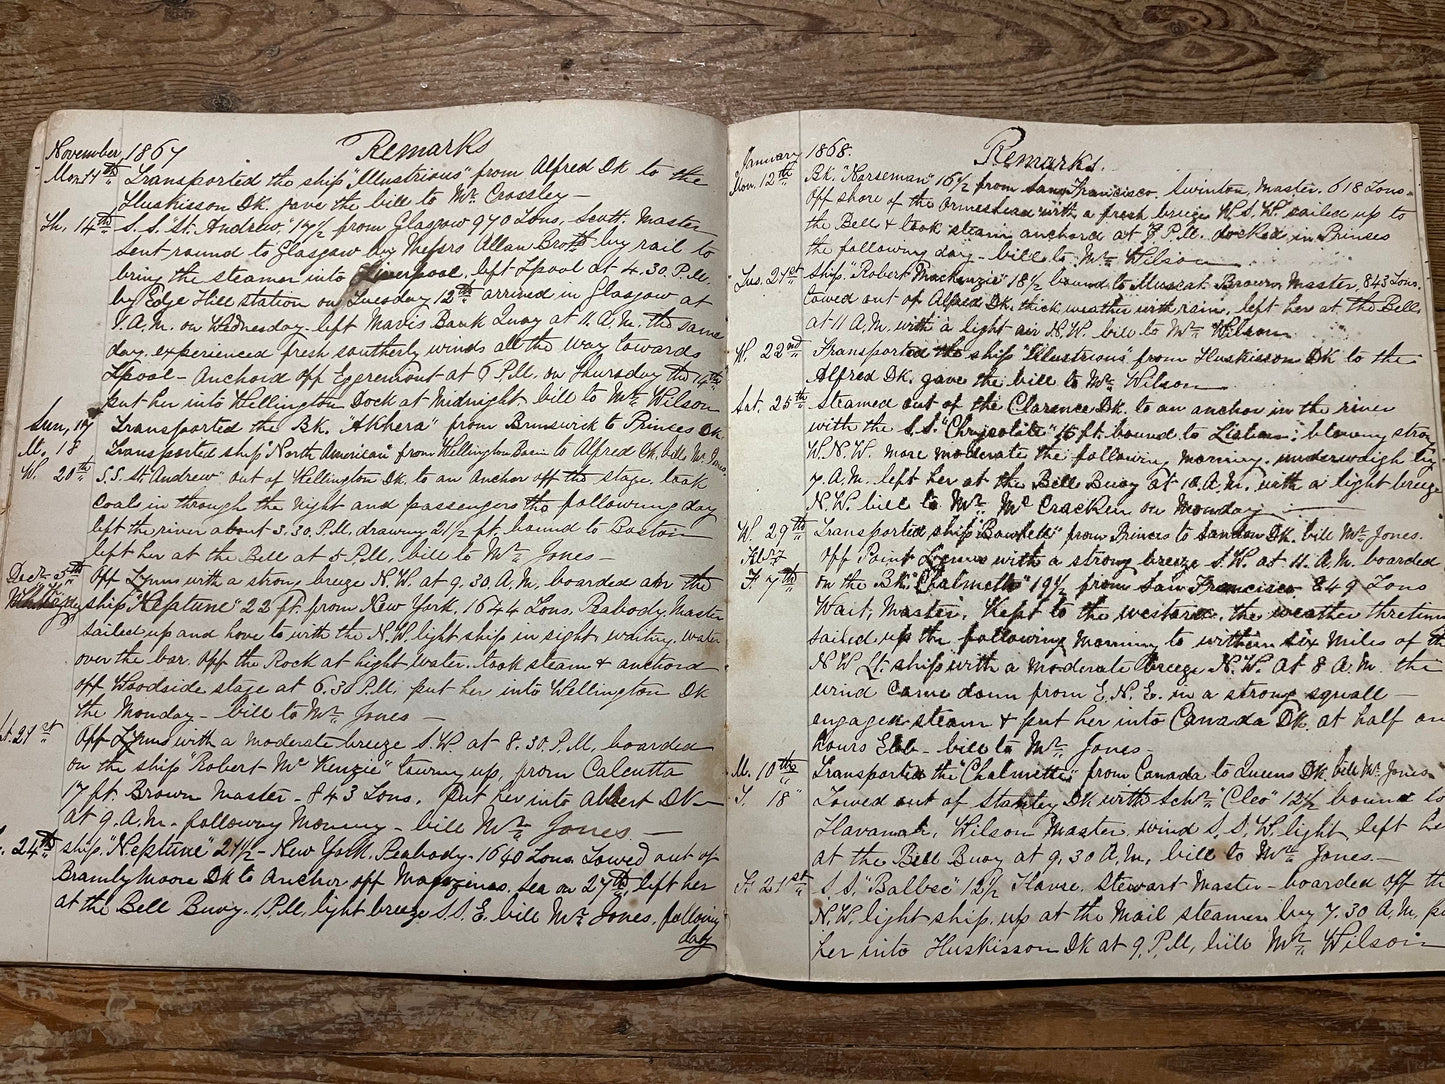 November 1867 Remarks
Mon 11th Transported the ship "Illustrious" from Alfred Dk to the
Huskisson Dk gave the bill to Mr. Crossley —
Th. 14th S.S. "St. Andrew" 17½ from Glasgow 970 Tons, Scott. Master
sent round to Glasgow by Messrs Allan Broths by rail to
bring the steamer into Liverpool, left Lpool at 4.30. P.M.
by Edge Hill station on Tuesday 12th arrived in Glasgow at
1 A.M. on Wednesday left Mavis Bank Quay at 11. A.M. the same
day, experienced fresh southerly winds all the way towards
Lpool – Anchord off Egremont at 6 P.M. on Thursday the 14th
put her into Wellington Dock at Midnight bill to Mr. Wilson
Sun, 17 Transported the Bk. "Akhera" from Brunswick to Princes Dk
M. 18 Transported ship "North American" from Wellington Basin to Alfred Dk. bill Mr Jones
W. 20th S.S. St. Andrew" out of Wellington Dk to an anchor off the stage, took
coals in through the night and passengers the following day
left the river about 3.30. P.M, drawing 21½ ft. bound to Boston
left her at the Bell at 5 P.M, bill to Mr. Jones —
Decr 5th Off Lynus with a strong breeze N.W. at 9.30 A.M. boarded the
ship "Neptune" 22 ft. from New York. 1644 Tons. Peabody Master
sailed up and hove to with the N.W. light ship in sight waiting water
over the bar. off the Rock at hight water. took steam & anchord
off Woodside stage at 6.30 P.M, put her into Wellington Dk
the Monday – bill to Mr. Jones —
Sat. 21st Off Lynus with a moderate breeze S.W. at 8.30. P.M, boarded
on the ship "Robert Mc Kenzie" towing up, from Calcutta
17 ft. Brown Master – 843 Tons. put her into Albert Dk —
at 9. A.M. following Morning – bill Mr. Jones —
24th ship "Neptune" 21½ – New York. Peabody – 1640 Tons. Towed out of
Bramly Moore Dk to Anchor off Magazines. Sea on 27th left her
at the Bell Buoy. 1. P.M, light breeze S.S.E. bill Mr. Jones, following
day
January 1868. Remarks.
Mon. 12th Bk. "Norseman" 16½ from San Francisco. Swinton, Master. 618 Tons.
Off shore of the Ormeshead with a fresh breeze W.S.W. sailed up to
the Bell & took steam anchord at P.M. docked in Princes
the following day – bill to Mr. Wilson
Tues. 21st Ship "Robert Mackenzie" 18½ bound to Muscat. Brown Master, 843 Tons.
towed out of Alfred Dk. thick weather with rain, left her at the Bell
at 11 A.M. with a light air N.W. bill to Mr. Wilson
W. 22nd Transported the ship "Illustrious" from Huskisson Dk to the
Alfred Dk. gave the bill to Mr. Wilson
Sat. 25th Steamed out of the Clarence Dk. to an anchor in the river
with the S.S. "Chrysolite" 15 ft. bound to Lisbon; blowing strong
W.N.W. more moderate the following morning. underweigh by
7 A.M. left her at the Bell Buoy at 10 A.M. with a light breeze
N.W. bill to Mr. Mc Cracken on Monday
W. 29th Transported ship from Princes to Dk. bill Mr. Jones.
Off Point Lynus with a strong breeze S.W. at 11. A.M. boarded
F. 7th on the Bk. "Chalmette" 19½ from San Francisco 849 Tons
Wait, Master. Kept to the westard, the weather thretening
sailed up the following morning to within six miles of the
N.W. Lt. ship with a moderate breeze N.W. at 8 A.M. the
wind came down from E.N.E. in a strong squall —
engaged steam & put her into Canada Dk. at half an
hours Ebb – bill to Mr. Jones –
M. 10th Transported the "Chalmette" from Canada to Queens Dk. bill Mr. Jones
T. 18" Towed out of Stanley Dk with Schr. "Cleo" 12½ bound to
Havanah, Wilson Master, wind S.S.W. light, left her
at the Bell Buoy at 9.30 A.M, bill to Mr. Jones. —
F. 21st S.S. "Balbec" 12½ Havre. Stewart Master – boarded off the
N.W. light ship, up at the Mail steamer buoy 7.30 A.M, put
her into Huskisson Dk at 9. P.M, bill Mr. Wilson